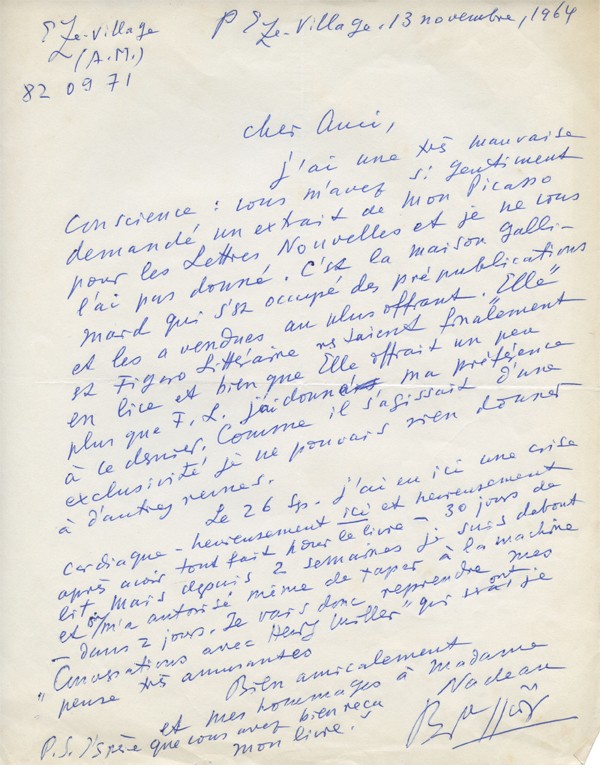 EZe-Village
(A.M.)
82 09 71
EZe-Village. 13 novembre, 1964
cher Ami,
j'ai une très mauvaise
conscience : vous m'avez si gentiment
demandé un extrait de mon Picasso
pour les Lettres Nouvelles et je ne vous
l'ai pas donné. C'est la maison Galli-
mard qui s'est occupé des prépublications
et les a vendues au plus offrant. "Elle"
et Figaro Littéraire restaient finalement
en lice et bien que Elle offrait un peu
plus que F. L. j'ai donné ma préférence
à ce dernier. Comme il s'agissait d'une
exclusivité je ne pouvais rien donner
à d'autres revues.
Le 26 Sp. j'ai eu ici une crise
cardiaque - heureusement ici et heureusement
après avoir tout fait pour le livre - 30 jours de
lit. Mais depuis 2 semaines je suis debout
et on m'a autorisé même de taper à la machine
- dans 2 jours. Je vais donc reprendre mes
"Conversations avec Henry Miller" qui sont je
pense très amusantes
Bien amicalement
et mes hommages à Madame
Nadeau
Brassaï
P.S. J'espère que vous avez bien reçu
mon livre.